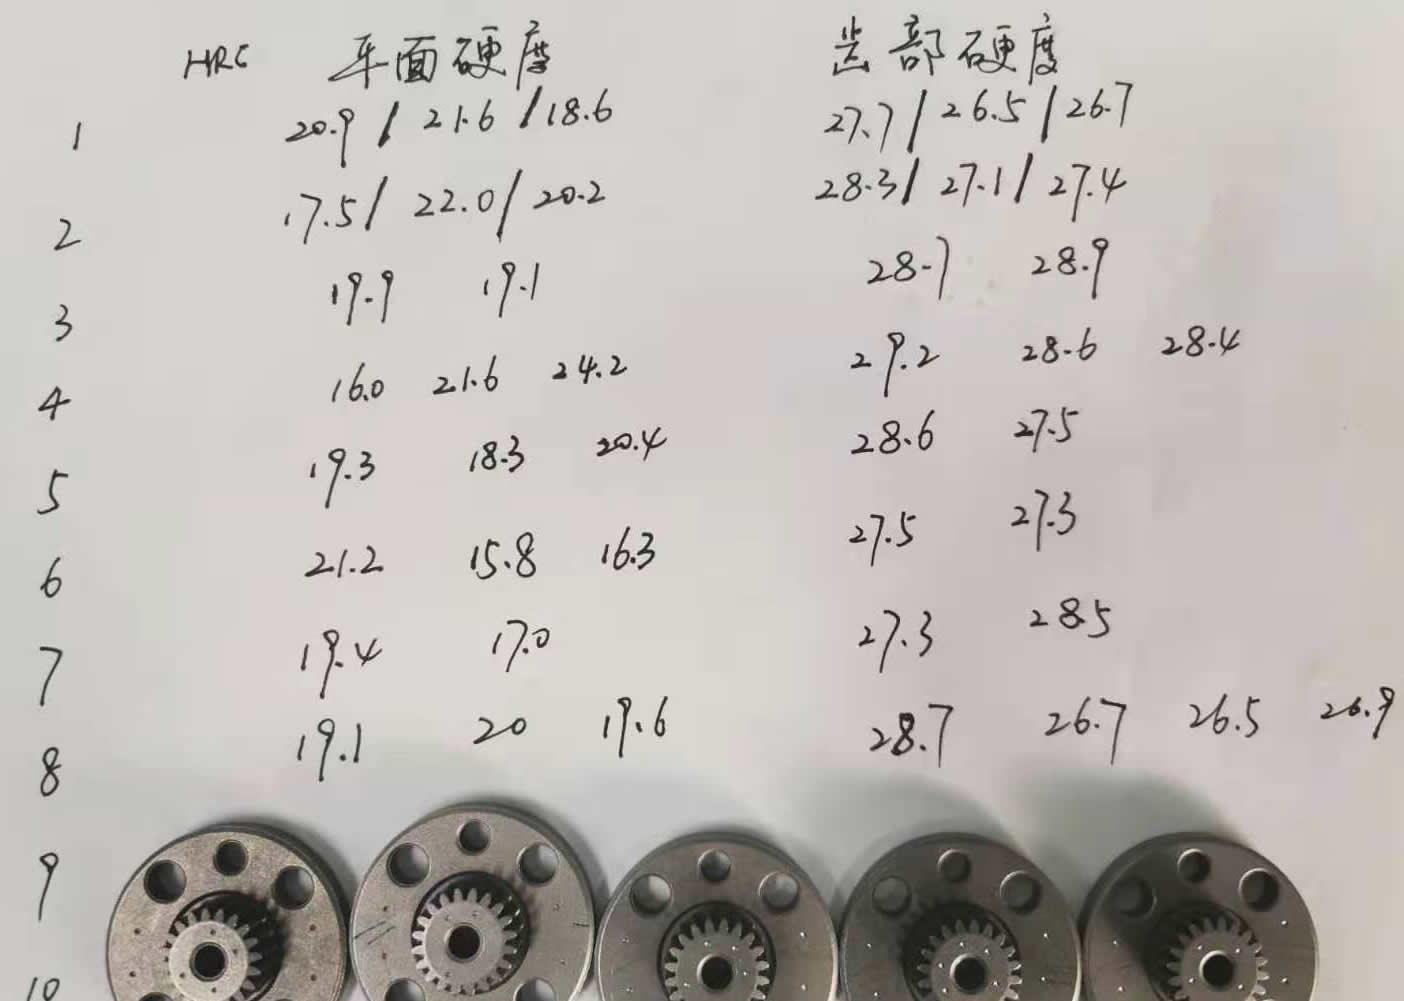 HRC 平面硬度 齿部硬度
1 20.9 / 21.6 / 18.6 27.7 / 26.5 / 26.7
2 17.5 / 22.0 / 20.2 28.3 / 27.1 / 27.4
3 19.9 19.1 28.7 28.9
4 16.0 21.6 24.2 29.2 28.6 28.4
5 19.3 18.3 20.4 28.6 27.5
6 21.2 15.8 16.3 27.5 27.3
7 19.4 17.0 27.3 28.5
8 19.1 20 19.6 28.7 26.7 26.5 26.9
9
10